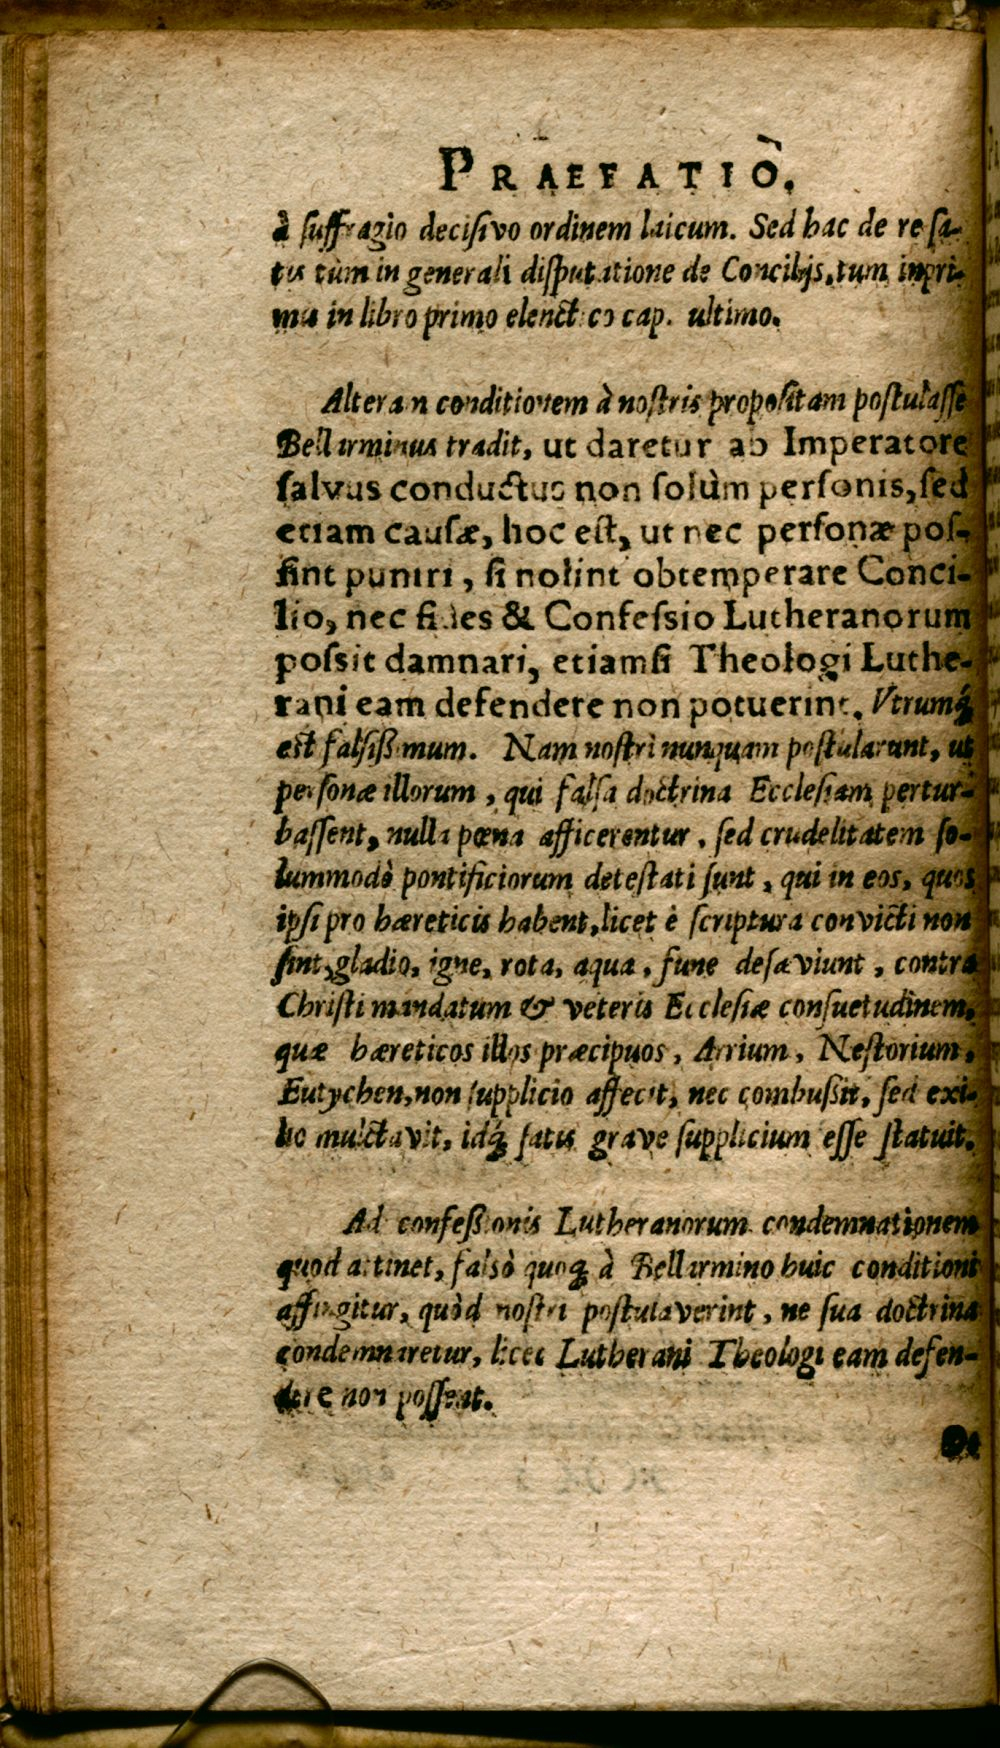 PRAEFATIO.
à suffragio decisivo ordinem laicum. Sed hac de re sa-
tis tùm in generali disputatione de Concilijs, tum inpri-
mis in libro primo elenctico cap. ultimo.
Alteram conditionem à nostris propositam postulasse
Bellarminus tradit, ut daretur ab Imperatore
salvus conductus non solùm personis, sed
etiam causæ, hoc est, ut nec personæ pos-
sint puniri, si nolint obtemperare Conci-
lio, nec fides & Confessio Lutheranorum
possit damnari, etiamsi Theologi Luthe-
rani eam defendere non potuerint. Vtrumq́
est falsißimum. Nam nostri nunquam postularunt, ut
personæ illorum, qui falsa doctrina Ecclesiam pertur-
bassent, nulla pœna afficerentur, sed crudelitatem so-
lummodò pontificiorum detestati sunt, qui in eos, quos
ipsi pro hæreticis habent, licet è scriptura convicti non
sint, gladio, igne, rota, aqua, fune desæviunt, contra
Christi mandatum & veteris Ecclesiæ consuetudinem,
quæ hæreticos illos præcipuos, Arrium, Nestorium,
Eutychen, non supplicio affecit, nec combußit, sed exi-
lio mulctavit, idq́ satis grave supplicium esse statuit.
Ad confeßionis Lutheranorum condemnationem
quod attinet, falsò quoq́ à Bellarmino huic conditioni
affingitur, quòd nostri postulaverint, ne sua doctrina
condemnaretur, licet Lutherani Theologi eam defen-
dere non possent.